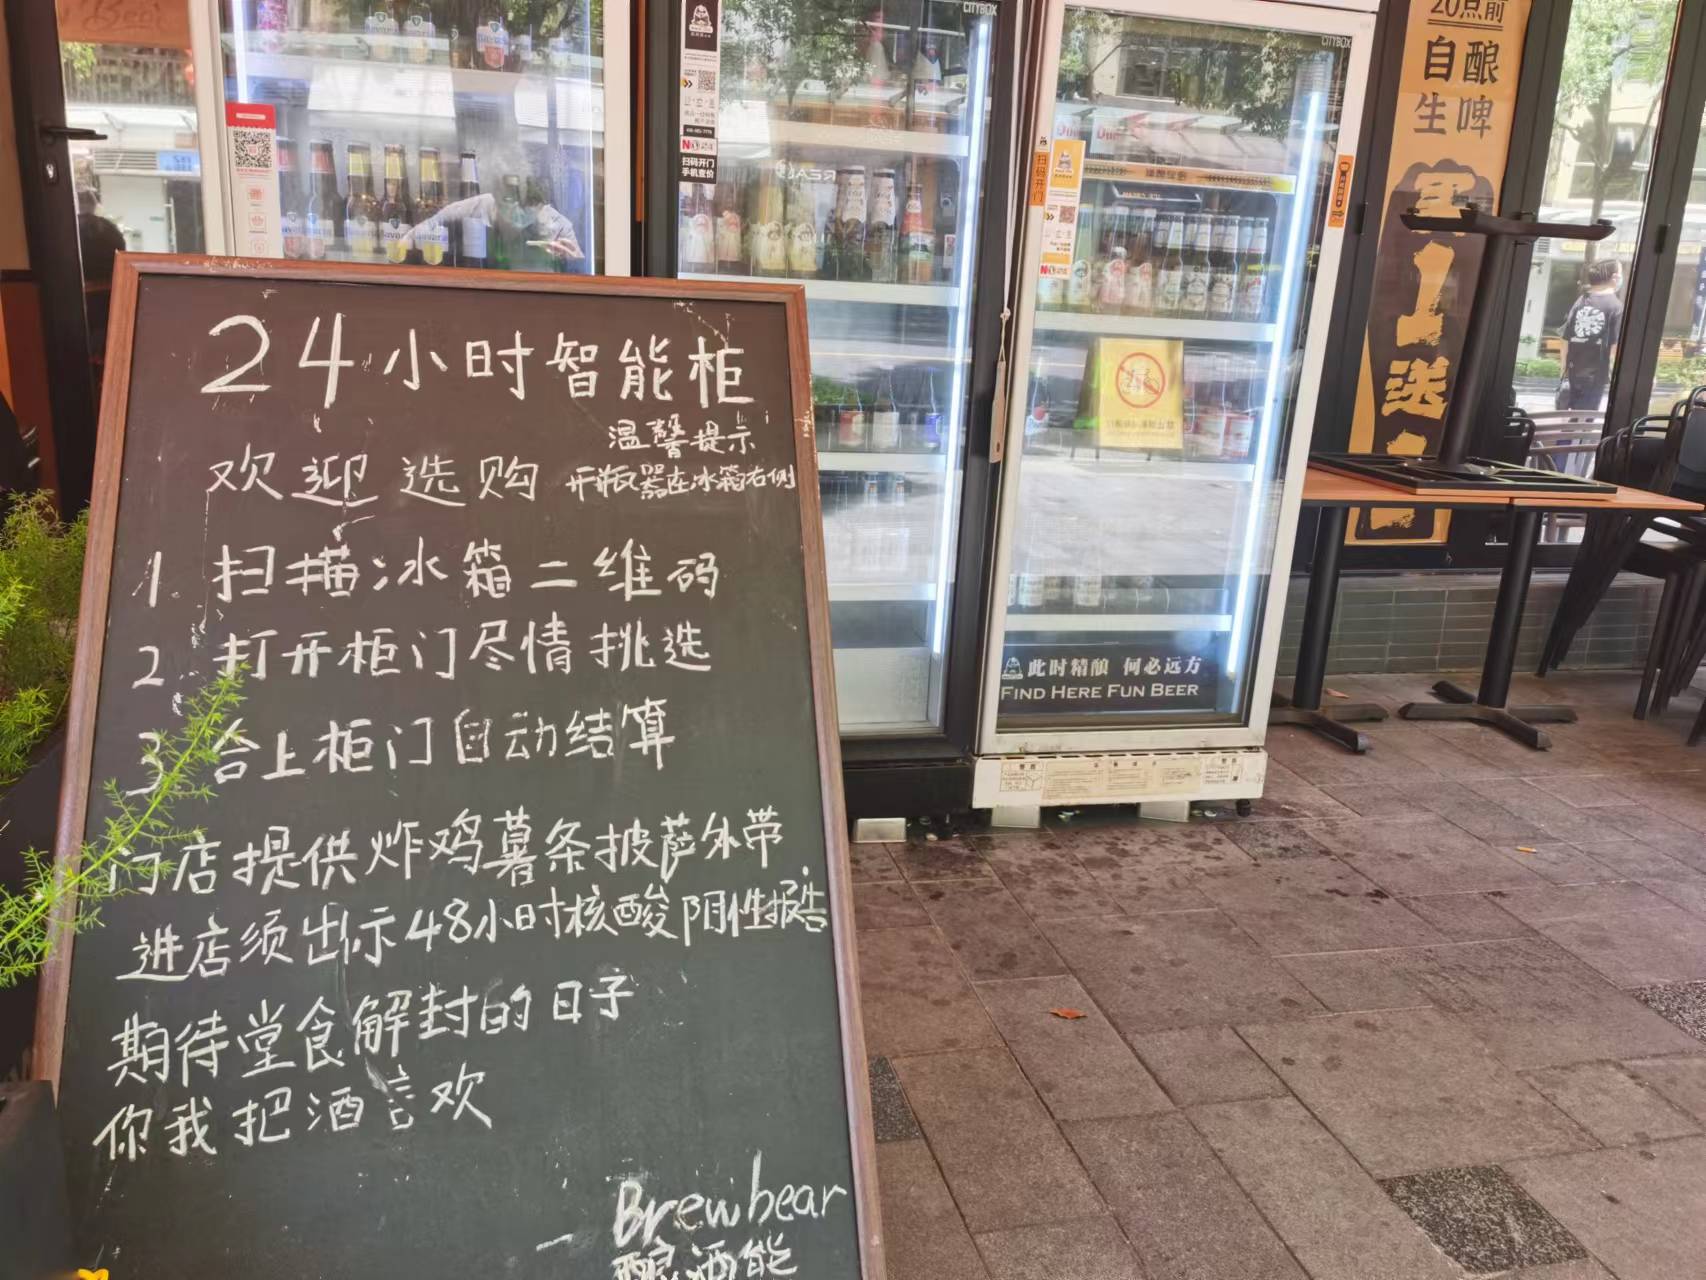 24小时智能柜
温馨提示
欢迎选购 开瓶器在冰箱右侧
1. 扫描冰箱二维码
2. 打开柜门尽情挑选
3. 合上柜门自动结算
门店提供炸鸡薯条披萨外带
进店须出示48小时核酸阴性报告
期待堂食解封的日子
你我把酒言欢
— Brewbear
酿酒熊
CITYBOX
扫码开门
手机查价
CITYBOX
扫码开门
此时精酿 何必远方
FIND HERE FUN BEER
20点前
自酿
生啤
买
送